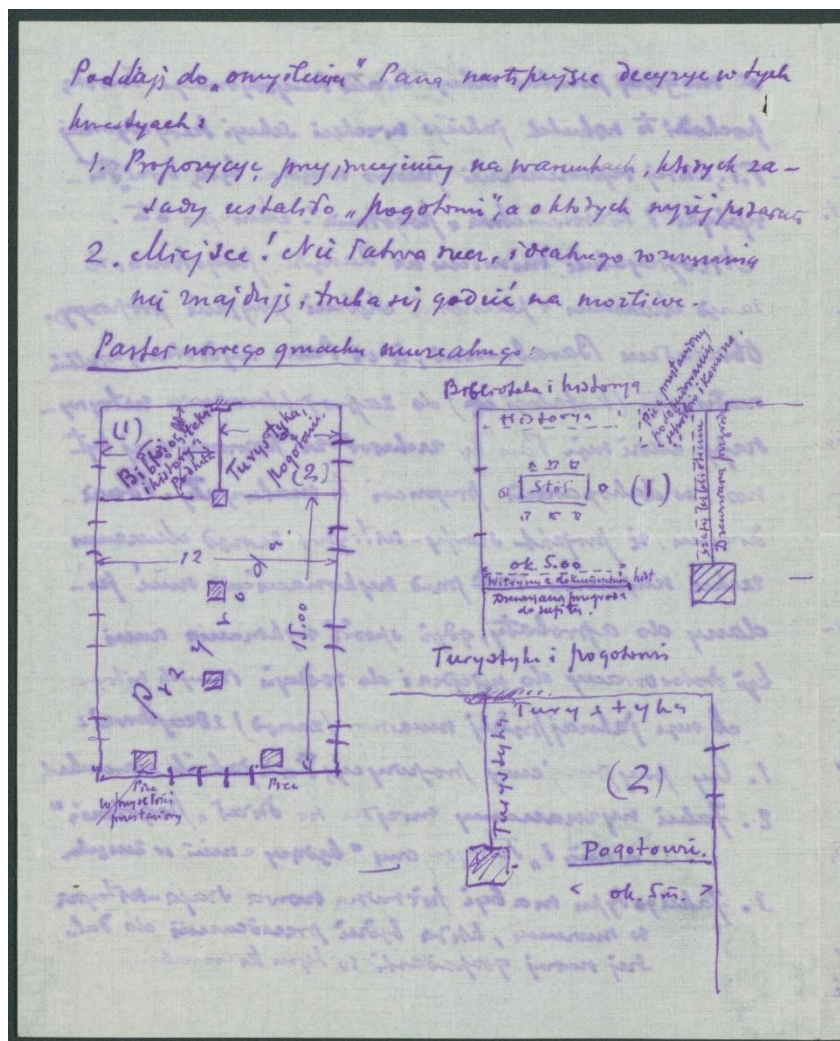 Poddaję do „omyślenia" Pana następujące decyzye w tych
kwestyach:
1. Propozycyę przyjmujemy na warunkach, których za-
sady ustaliło „pogotowie", a o których wyżej
2. Miejsce! Nie łatwa rzecz, idealnego rozwiązania
nie znajduję, trzeba się godzić na możliwe.
Parter nowego gmachu muzealnego:
(1)
Biblioteka
i historya
Turystyka,
pogotowie.
(2)
12
15.00
Przyroda
Piec
w przyszłości
przestawiony
Piec
Biblioteka i historya
Historya
Piec przestawiony
Stół
(1)
Szafy biblioteczne
Drewniana przegroda
ok. 5.00
Witryny z dokumentami hist.
Drewniana przegroda
do sufitu.
Turystyka i pogotowie
Turystyka
Turystyka
(2)
Pogotowie.
ok. 5 m.